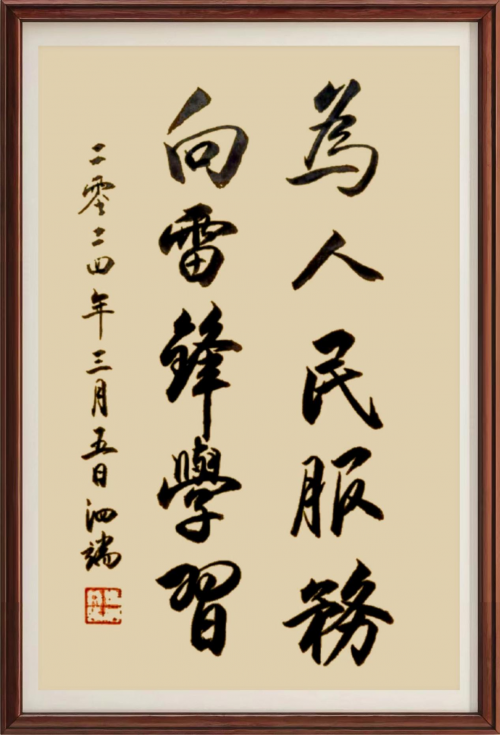 為人民服務
向雷鋒學習
二零二四年三月五日泗端